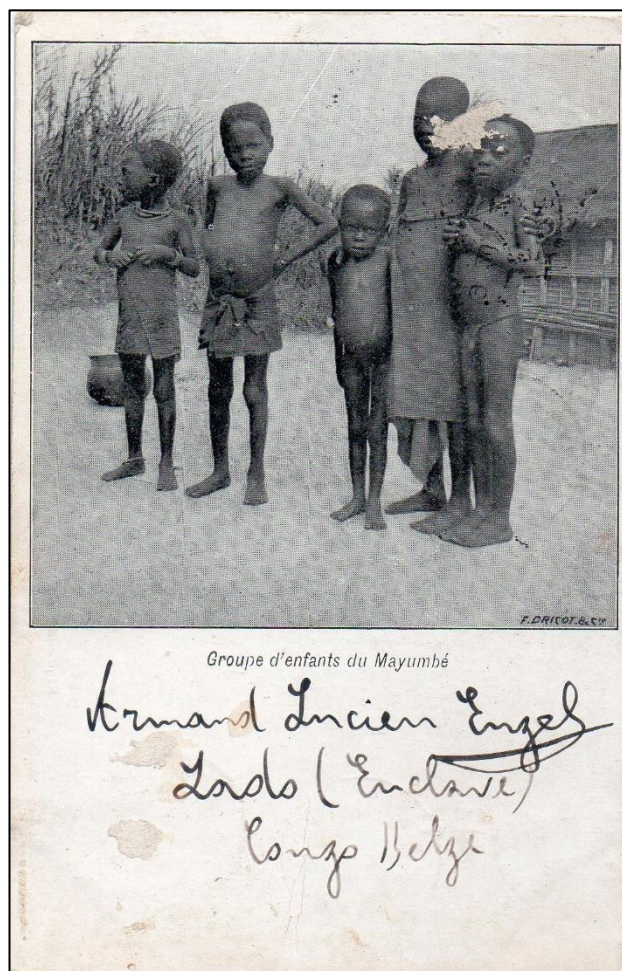 F. DRICOT. & Cie
Groupe d'enfants du Mayumbé
Armand Lucien Engel
Lado (Enclave)
Congo Belge